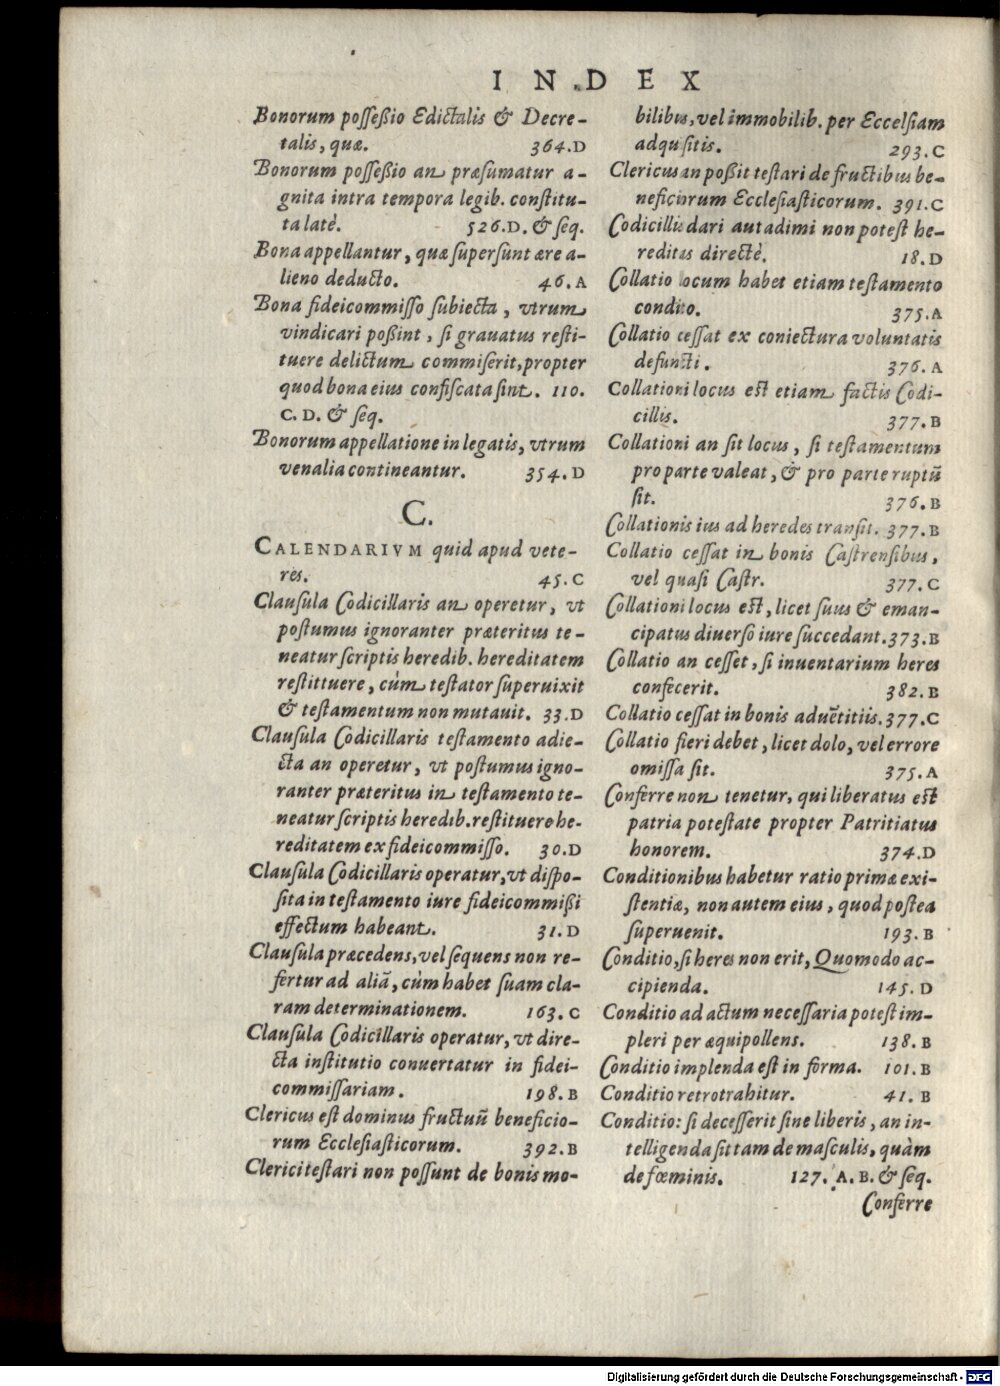 INDEX
Bonorum possessio Edictalis & Decre-
talis, quæ. 364.D
Bonorum possessio an præsumatur a-
gnita intra tempora legib. constitu-
ta latè. 526.D. & seq.
Bona appellantur, quæ supersunt ære a-
lieno deducto. 46.A
Bona fideicommisso subiecta, vtrum
vindicari possint, si grauatus resti-
tuere delictum commiserit, propter
quod bona eius confiscata sint. 110.
C. D. & seq.
Bonorum appellatione in legatis, vtrum
venalia contineantur. 354.D
C.
CALENDARIVM quid apud vete-
res. 45.C
Clausula Codicillaris an operetur, vt
postumus ignoranter præteritus te-
neatur scriptis heredib. hereditatem
restittuere, cùm testator superuixit
& testamentum non mutauit. 33.D
Clausula Codicillaris testamento adie-
cta an operetur, vt postumus igno-
ranter præteritus in testamento te-
neatur scriptis heredib. restituere he-
reditatem ex fideicommisso. 30.D
Clausula Codicillaris operatur, vt dispo-
sita in testamento iure fideicommissi
effectum habeant. 31.D
Clausula præcedens, vel sequens non re-
fertur ad aliã, cùm habet suam cla-
ram determinationem. 163.C
Clausula Codicillaris operatur, vt dire-
cta institutio conuertatur in fidei-
commissariam. 198.B
Clericus est dominus fructuũ beneficio-
rum Ecclesiasticorum. 392.B
Clerici testari non possunt de bonis mo-
bilibus, vel immobilib. per Eccelsiam
adqusitis. 293.C
Clericus an possit testari de fructibus be-
neficiorum Ecclesiasticorum. 391.C
Codicillis dari aut adimi non potest he-
reditas directè. 18.D
Collatio locum habet etiam testamento
condito. 375.A
Collatio cessat ex coniectura voluntatis
defuncti. 376.A
Collationi locus est etiam factis Codi-
cillis. 377.B
Collationi an sit locus, si testamentum
pro parte valeat, & pro parte ruptũ
sit. 376.B
Collationis ius ad heredes transit. 377.B
Collatio cessat in bonis Castrensibus,
vel quasi Castr. 377.C
Collationi locus est, licet suus & eman-
cipatus diuerso iure succedant. 373.B
Collatio an cesset, si inuentarium heres
confecerit. 382.B
Collatio cessat in bonis aduẽtitiis. 377.C
Collatio fieri debet, licet dolo, vel errore
omissa sit. 375.A
Conferre non tenetur, qui liberatus est
patria potestate propter Patritiatus
honorem. 374.D
Conditionibus habetur ratio primæ exi-
stentiæ, non autem eius, quod postea
superuenit. 193.B
Conditio, si heres non erit, Quomodo ac-
cipienda. 145.D
Conditio ad actum necessaria potest im-
pleri per æquipollens. 138.B
Conditio implenda est in forma. 101.B
Conditio retrotrahitur. 41.B
Conditio: si decesserit sine liberis, an in-
telligenda sit tam de masculis, quàm
de fœminis. 127. A. B. & seq.
Conferre
Digitalisierung gefördert durch die Deutsche Forschungsgemeinschaft - DFG